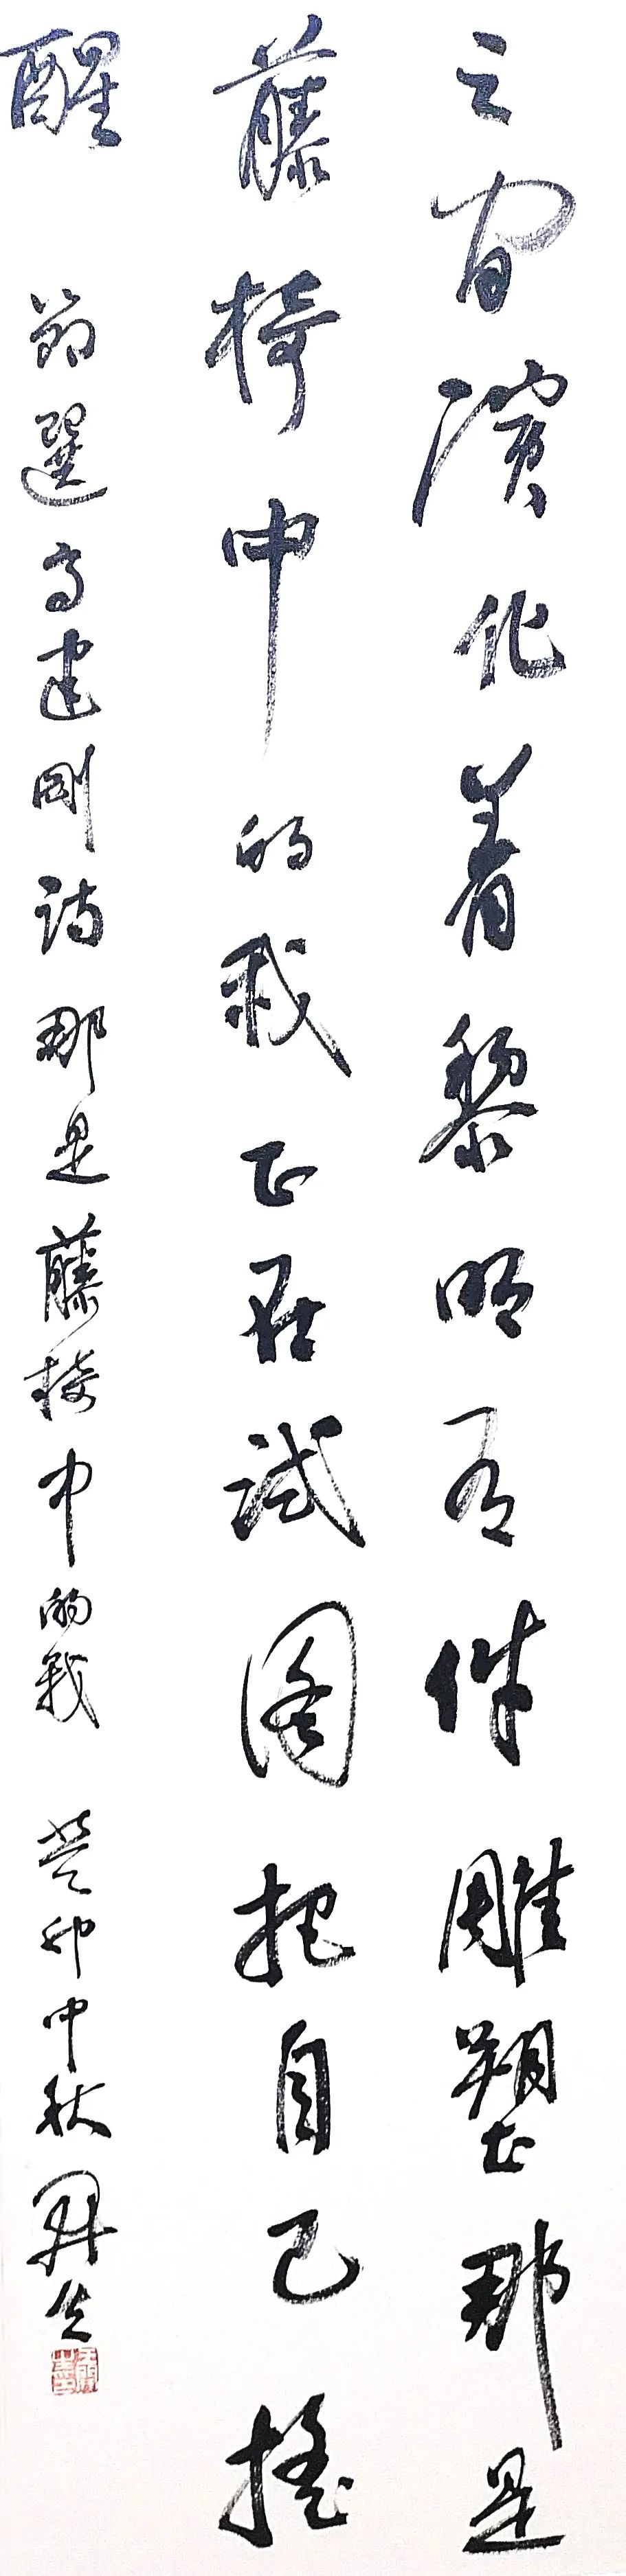 之间演化着黎明有件雕塑那是
藤椅中的我正在试图把自己摇
醒 節選高建剛诗那是藤椅中的我 癸卯中秋